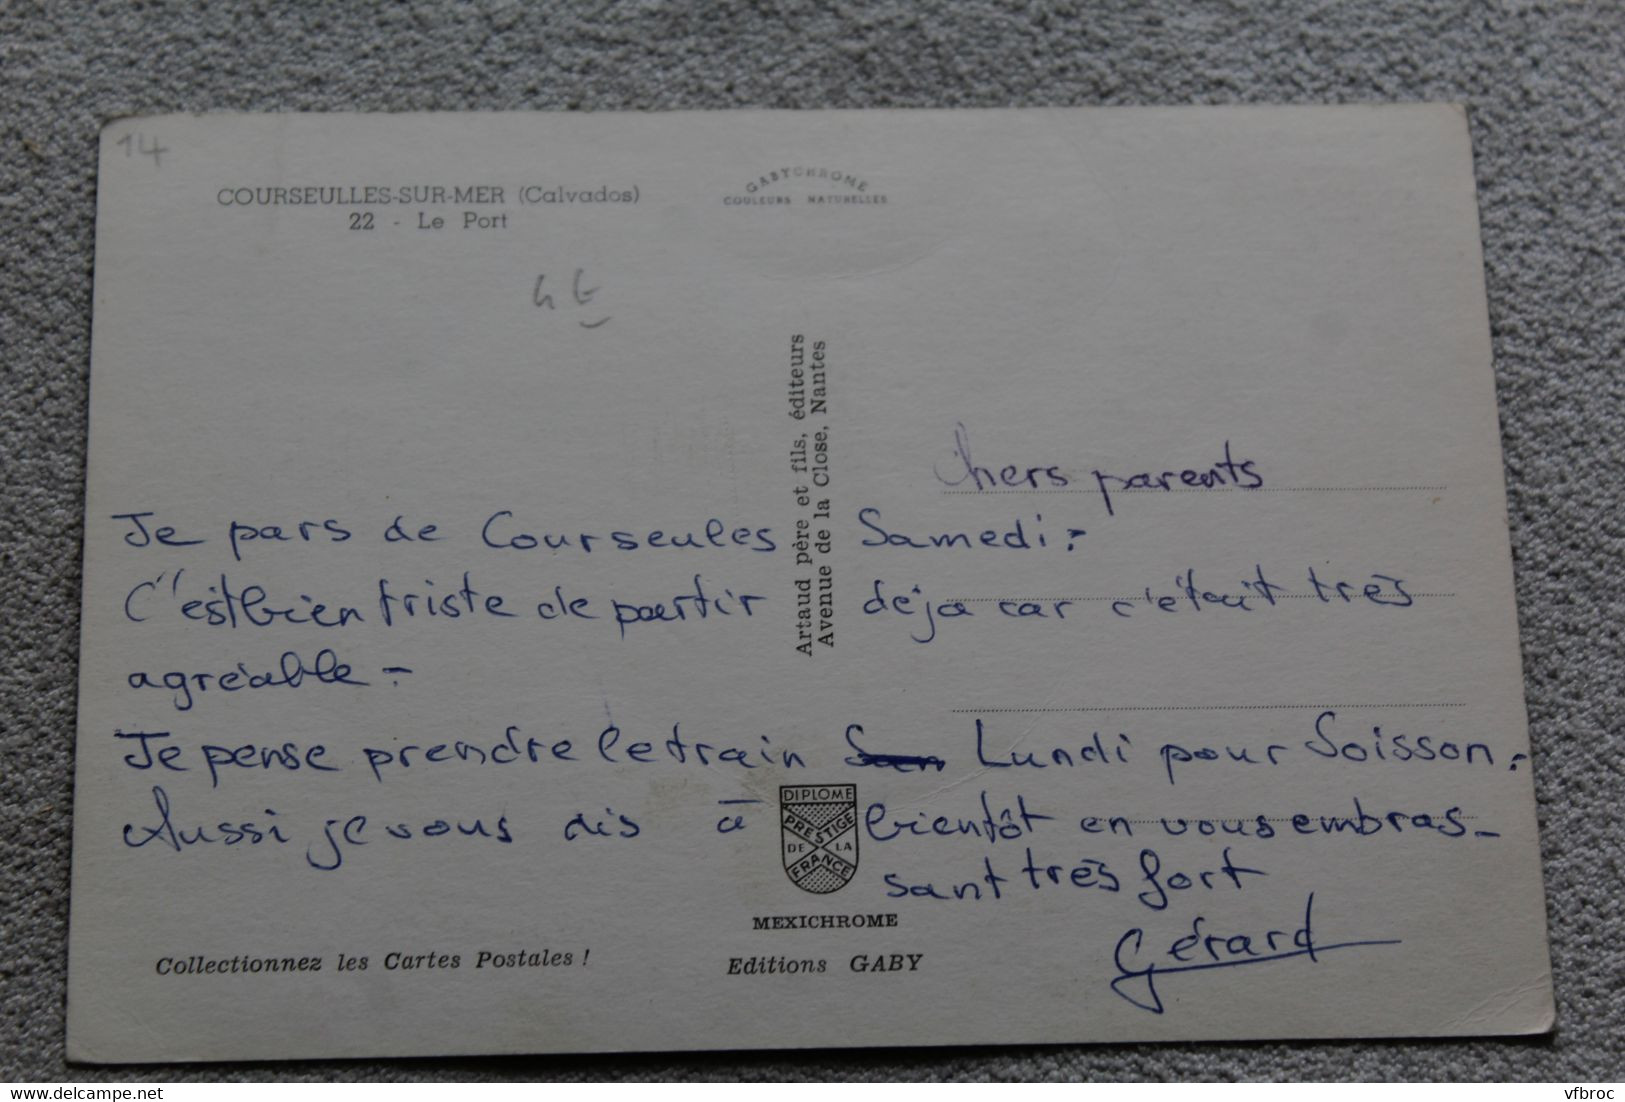 14
COURSEULLES-SUR-MER (Calvados)
22 - Le Port
GABYCHROME
COULEURS NATURELLES
4 €
Artaud père et fils, éditeurs
Avenue de la Close, Nantes
Chers parents
Je pars de Courseules Samedi.
C'est bien triste de partir déja car c'était très
agréable.
Je pense prendre le train Sam Lundi pour Soisson.
Aussi je vous dis à bientôt en vous embras-
sant très fort
Gérard
DIPLOME
PRESTIGE
DE LA
FRANCE
MEXICHROME
Collectionnez les Cartes Postales !
Editions GABY
delcampe.net
vfbroc